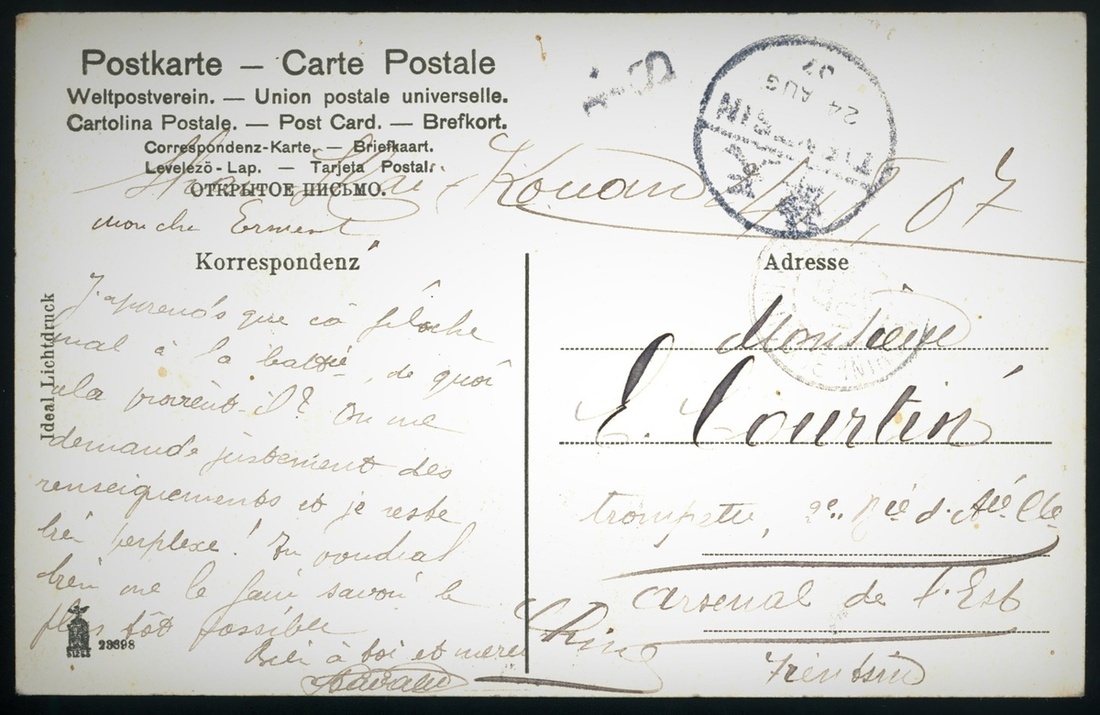 Postkarte – Carte Postale
Weltpostverein. — Union postale universelle.
Cartolina Postale. — Post Card. — Brefkort.
Correspondenz-Karte. – Briefkaart.
Levelezö-Lap. – Tarjeta Postal.
ОТКРЫТОЕ ПИСЬМО.
TIENTSIN
24 AUG
07
Kouan 07
mon che Ernest
Korrespondenz
J'apprends que ça
mal à la batie, de quoi
cela provient-il? On me
demande justement des
renseignements et je reste
bien perplexe! Tu voudrais
bien me le faire savoir le
plus tôt possible
Bien à toi et merci
Ideal Lichtdruck
23698
Adresse
Monsieur
E. Courtin
trompette, 2e Bie d'Aie Cle
Arsenal de l'Est
Tientsin
Chine